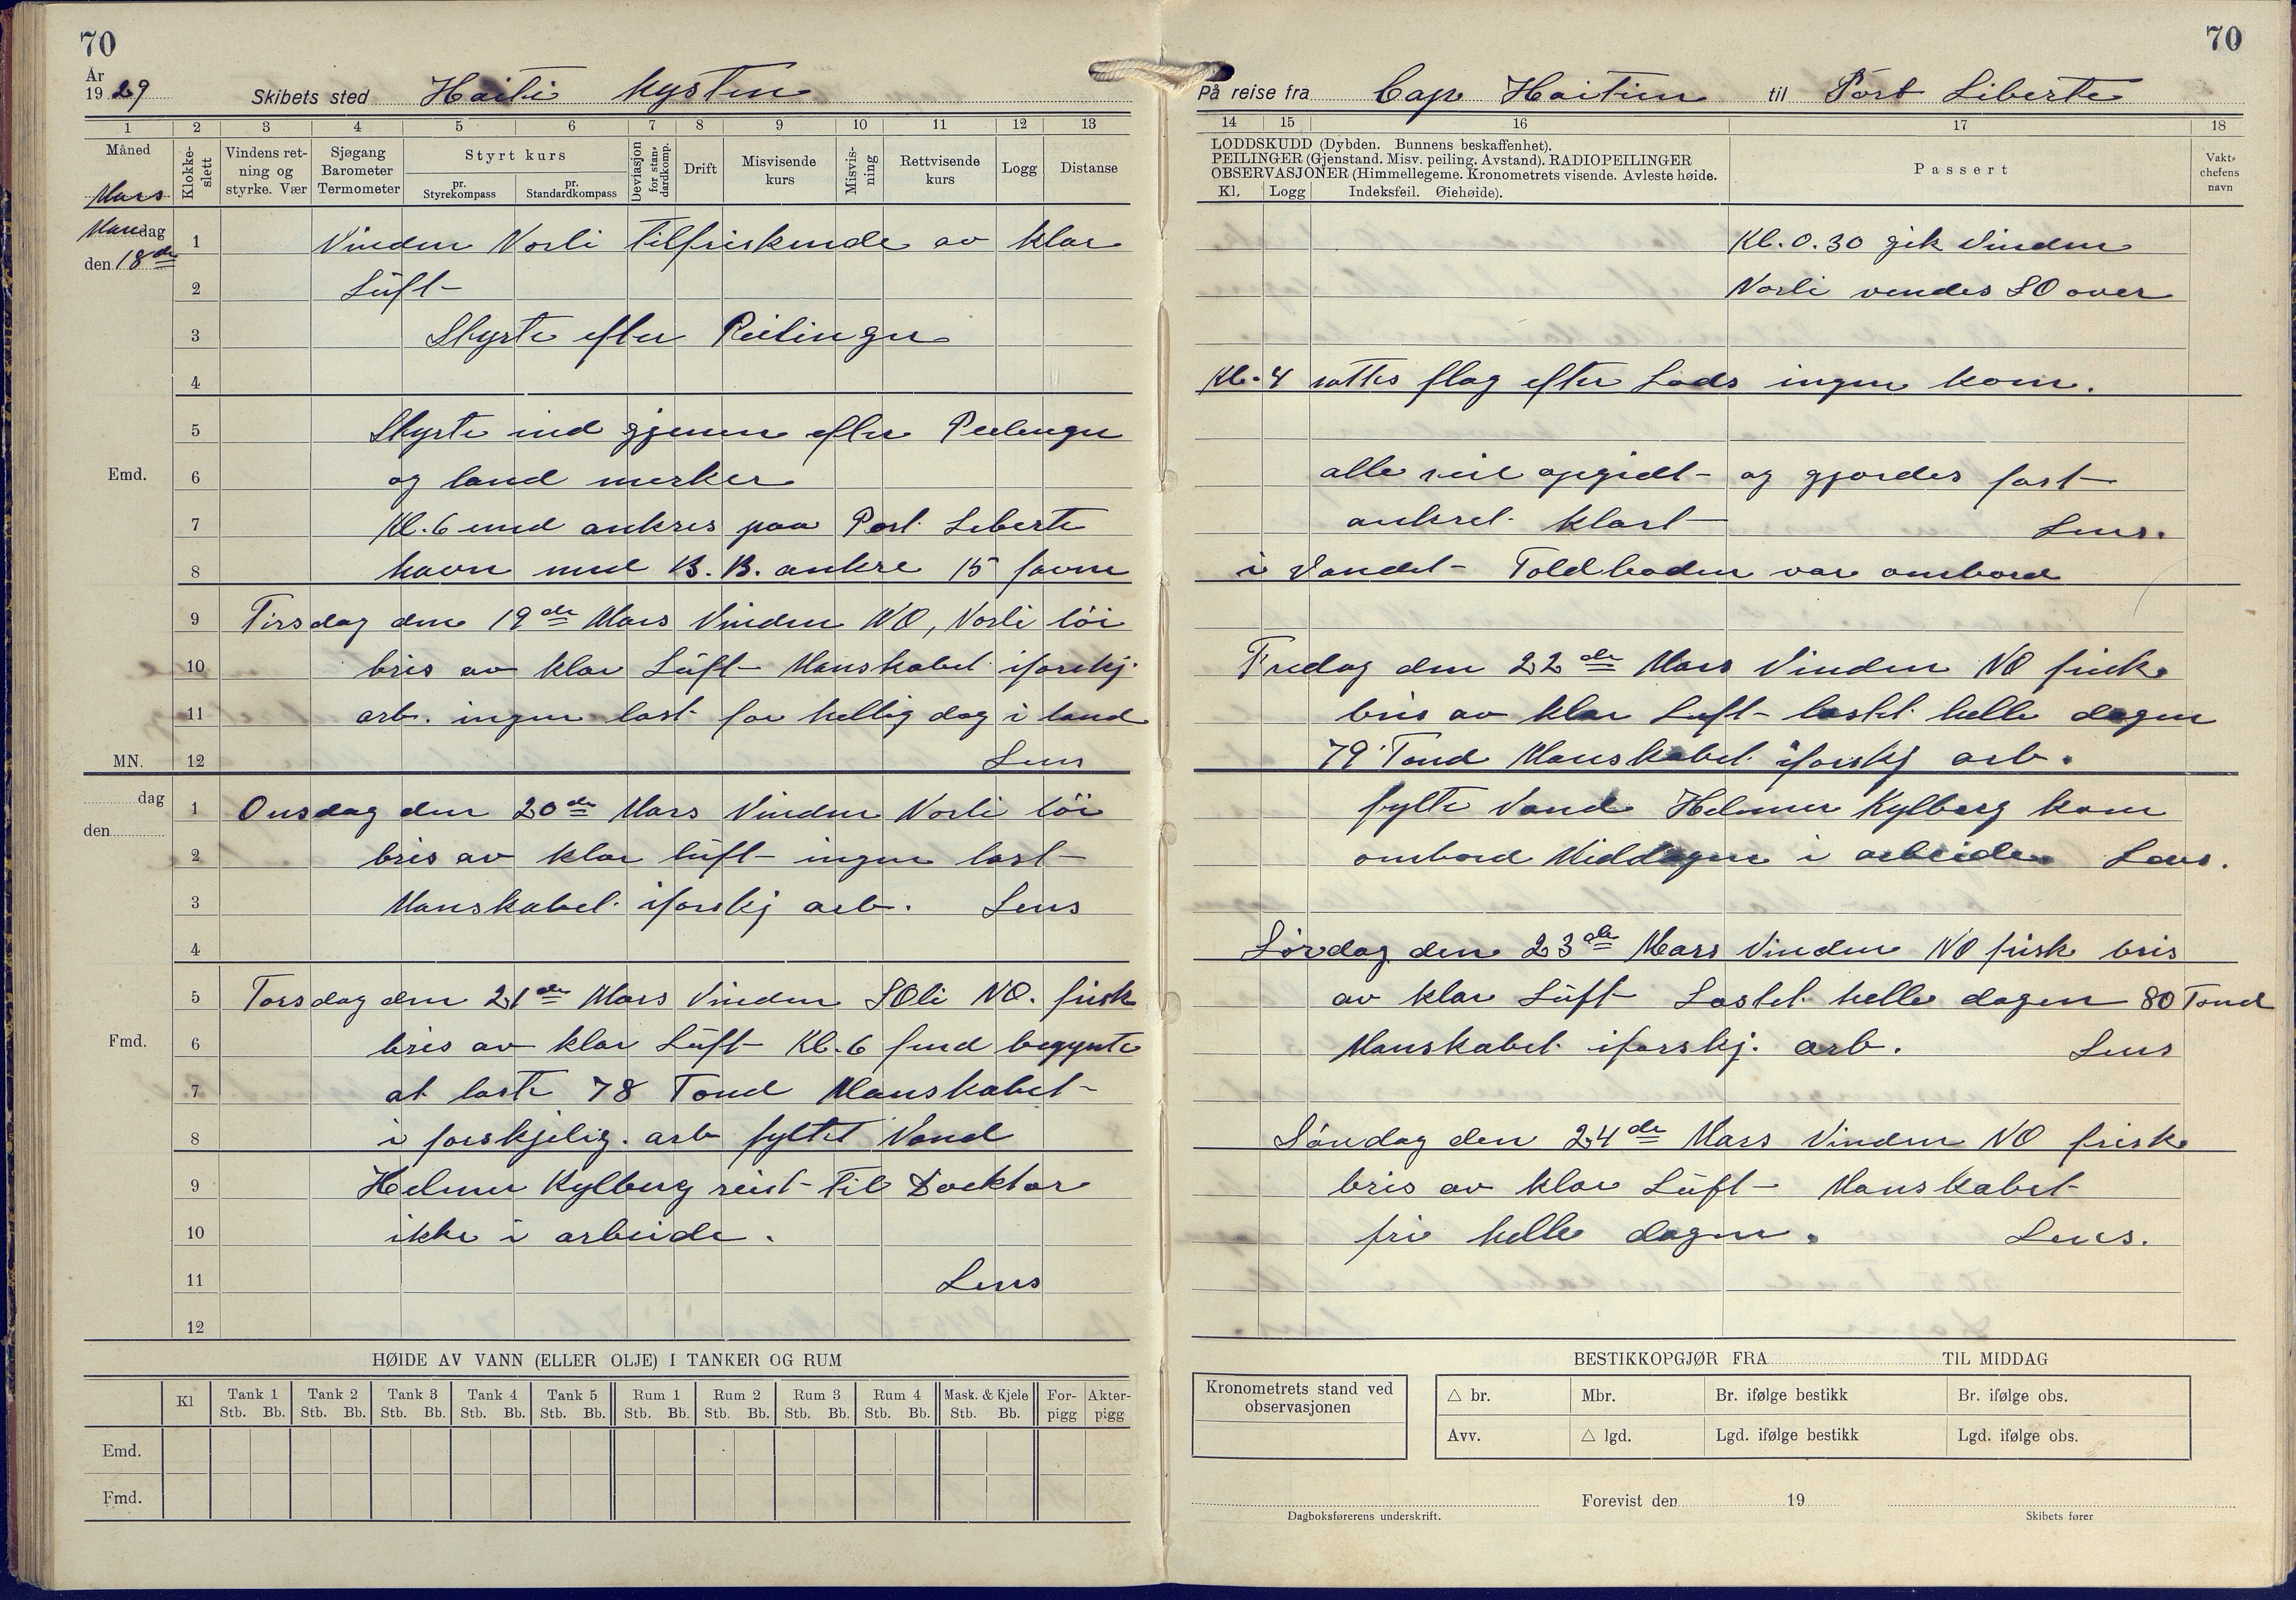 70
År
1929
Skibets sted Haiti Kysten
1 2 3 4 5 6 7 8 9 10 11 12 13
Måned
Mars
Klokke-
slett
Vindens ret-
ning og
styrke. Vær
Sjøgang
Barometer
Termometer
Styrt kurs
pr.
Styrekompass
pr.
Standardkompass
Deviasjon
for stan-
dardkomp.
Drift
Misvisende
kurs
Misvis-
ning
Rettvisende
kurs
Logg
Distanse
Mandag
den 18de
1 Vinden Nosli tilfriskende av klar
2 Luft
3 Styrte efter Peilinger
4
5 Styrte ind gjenem efter Peilinger
Emd. 6 og land merker
7 Kl. 6 emd ankres paa Port Liberte
8 havn med B.B. ankre 15 favne
9 Tirsdag den 19de Mars Vinden NO, Nosli löi
10 bris av klar Luft Manskabet iforskj.
11 arb. ingen last for hellig dag i land
MN. 12 Lens
dag
den
1 Onsdag den 20de Mars Vinden Nosli löi
2 bris av klar luft ingen last
3 Manskabet iforskj arb. Lens
4
5 Torsdag den 21de Mars Vinden SOli NO. frisk
Fmd. 6 bris av klar Luft Kl. 6 fmd begynte
7 at laste 78 Tond Manskabet
8 i forskjelig. arb fyltet Vand
9 Helmer Kylberg reist til Docktor
10 ikke i arbeide.
11 Lens
12
HØIDE AV VANN (ELLER OLJE) I TANKER OG RUM
Kl
Tank 1
Stb. Bb.
Tank 2
Stb. Bb.
Tank 3
Stb. Bb.
Tank 4
Stb. Bb.
Tank 5
Stb. Bb.
Rum 1
Stb. Bb.
Rum 2
Stb. Bb.
Rum 3
Stb. Bb.
Rum 4
Stb. Bb.
Mask. & Kjele
Stb. Bb.
For-
pigg
Akter-
pigg
Emd.
Fmd.
70
På reise fra Cap Haitien til Port Liberte
14 15 16 17 18
LODDSKUDD (Dybden. Bunnens beskaffenhet).
PEILINGER (Gjenstand. Misv. peiling. Avstand). RADIOPEILINGER
OBSERVASJONER (Himmellegeme. Kronometrets visende. Avleste høide.
Kl. Logg Indeksfeil. Øiehøide).
Passert
Vakt-
chefens
navn
Kl. 0.30 gik Vinden
Nosli vendes SO over
Kl. 4 sattes flag efter Lods ingen kom.
alle seil opgidt og gjordes fast
ankret klart Lens.
i Vandet Toldboden var ombord
Fredag den 22de Mars Vinden NO frisk
bris av klar Luft lastet helle dagen
79 Tond Manskabet iforskj arb.
fylte Vand Helmer Kylberg kom
ombord Middagen i arbeide Lens.
Lørdag den 23de Mars Vinden NO frisk bris
av klar Luft Lastet helle dagen 80 Tond
Manskabet iforskj. arb. Lens
Søndag den 24de Mars Vinden NO frisk
bris av klar Luft Manskabet
fri helle dagen. Lens.
BESTIKKOPGJØR FRA TIL MIDDAG
Kronometrets stand ved
observasjonen
△ br. Mbr. Br. ifølge bestikk Br. ifølge obs.
Avv. △ lgd. Lgd. ifølge bestikk Lgd. ifølge obs.
Forevist den 19
Dagboksførerens underskrift.
Skibets fører